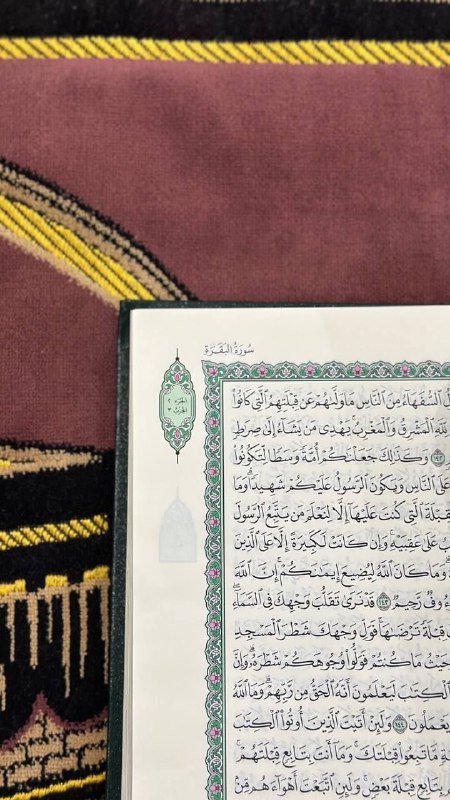 سُورَةُ البَقَرَةِ
الجزء ٢
الحزب ٣
السُّفَهَآءُ مِنَ ٱلنَّاسِ مَا وَلَّىٰهُمْ عَن قِبْلَتِهِمُ ٱلَّتِى كَانُوا۟
لِّلَّهِ ٱلْمَشْرِقُ وَٱلْمَغْرِبُ يَهْدِى مَن يَشَآءُ إِلَىٰ صِرَٰطٍ
١٤٢ وَكَذَٰلِكَ جَعَلْنَٰكُمْ أُمَّةً وَسَطًا لِّتَكُونُوا۟
عَلَى ٱلنَّاسِ وَيَكُونَ ٱلرَّسُولُ عَلَيْكُمْ شَهِيدًا وَمَا
ٱلَّتِى كُنتَ عَلَيْهَآ إِلَّا لِنَعْلَمَ مَن يَتَّبِعُ ٱلرَّسُولَ
عَلَىٰ عَقِبَيْهِ وَإِن كَانَتْ لَكَبِيرَةً إِلَّا عَلَى ٱلَّذِينَ
وَمَا كَانَ ٱللَّهُ لِيُضِيعَ إِيمَٰنَكُمْ إِنَّ ٱللَّهَ
رَّحِيمٌ ١٤٣ قَدْ نَرَىٰ تَقَلُّبَ وَجْهِكَ فِى ٱلسَّمَآءِ
قِبْلَةً تَرْضَىٰهَا فَوَلِّ وَجْهَكَ شَطْرَ ٱلْمَسْجِدِ
حَيْثُ مَا كُنتُمْ فَوَلُّوا۟ وُجُوهَكُمْ شَطْرَهُۥ وَإِنَّ
ٱلْكِتَٰبَ لَيَعْلَمُونَ أَنَّهُ ٱلْحَقُّ مِن رَّبِّهِمْ وَمَا ٱللَّهُ
يَعْمَلُونَ ١٤٤ وَلَئِنْ أَتَيْتَ ٱلَّذِينَ أُوتُوا۟ ٱلْكِتَٰبَ
مَّا تَبِعُوا۟ قِبْلَتَكَ وَمَآ أَنتَ بِتَابِعٍ قِبْلَتَهُمْ
بِتَابِعٍ قِبْلَةَ بَعْضٍ وَلَئِنِ ٱتَّبَعْتَ أَهْوَآءَهُم مِّنۢ